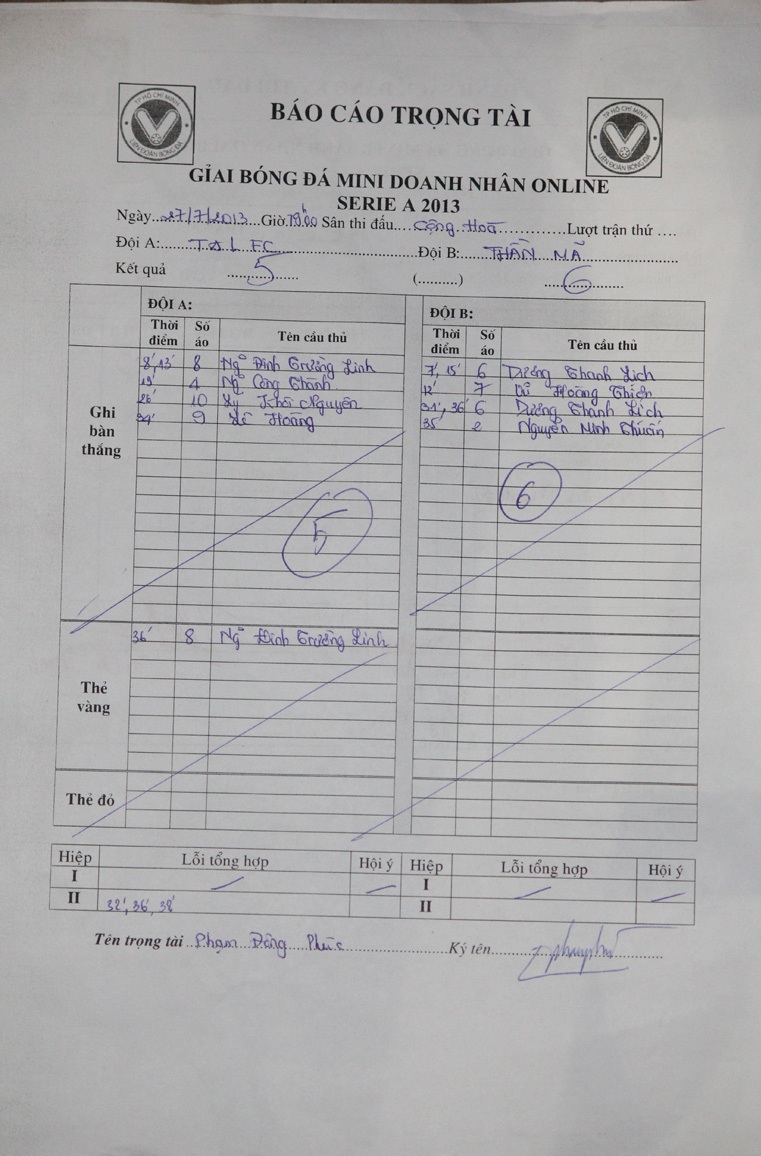 TP HỒ CHÍ MINH
LIÊN ĐOÀN BÓNG ĐÁ
BÁO CÁO TRỌNG TÀI
TP HỒ CHÍ MINH
LIÊN ĐOÀN BÓNG ĐÁ
GIẢI BÓNG ĐÁ MINI DOANH NHÂN ONLINE
SERIE A 2013
Ngày...27/7/2013...Giờ:19h00 Sân thi đấu....Cộng Hoà...............Lượt trận thứ ....
Đội A:......T&L FC......Đội B:......THẦN MÃ......
Kết quả ......5...... (..........) ......6......
ĐỘI A: ĐỘI B:
Thời điểm Số áo Tên cầu thủ Thời điểm Số áo Tên cầu thủ
Ghi bàn thắng
8', 13' 8 Ng~ Đình Trường Linh 7', 15' 6 Dương Thanh Lịch
19' 4 Ng~ Công Thành 12' 7 Hoàng Thích
26' 10 Lý Khôi Nguyên 31', 36' 6 Dương Thanh Lịch
34' 9 Lê Hoàng 35' 2 Nguyễn Minh Thuấn
5 6
Thẻ vàng
36' 8 Ng~ Đình Trường Linh
Thẻ đỏ
Hiệp Lỗi tổng hợp Hội ý Hiệp Lỗi tổng hợp Hội ý
I I
II 32', 36', 38' II
Tên trọng tài ..Phạm Đăng Phúc......Ký tên......